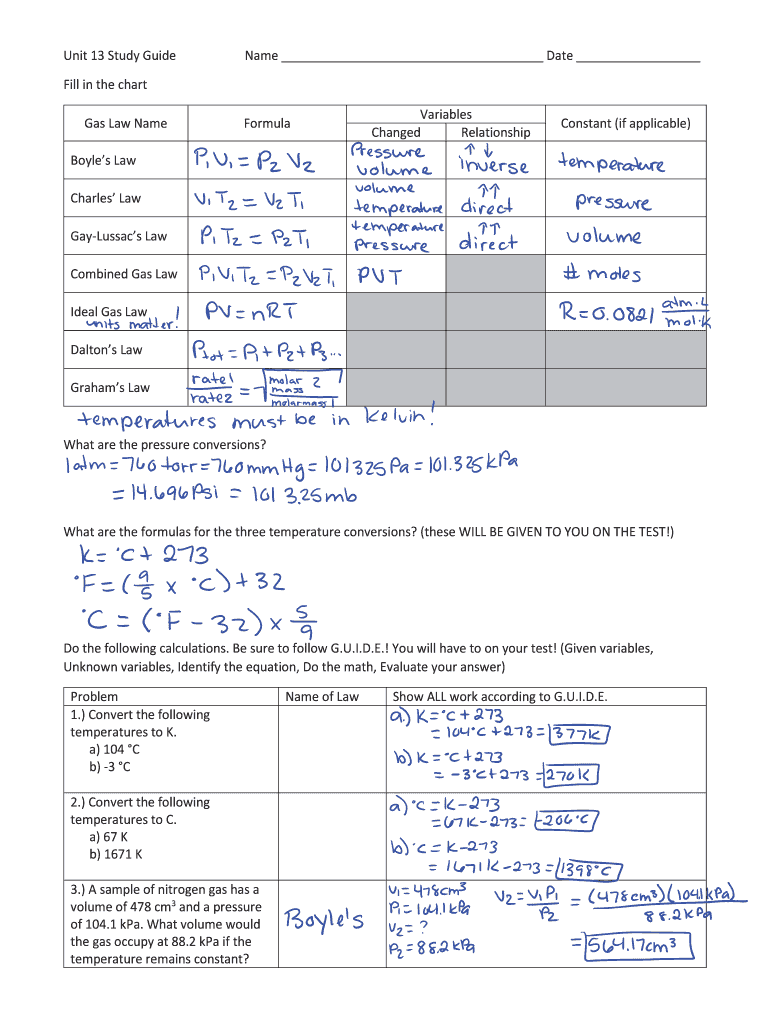 Unit 13 Study Guide Name ____________ Date ____________
Fill in the chart
Gas Law Name Formula Variables Constant (if applicable)
Changed Relationship
Boyle's Law P₁V₁ = P₂V₂ Pressure volume ↑↓ inverse temperature
Charles' Law V₁T₂ = V₂T₁ volume temperature ↑↑ direct pressure
Gay-Lussac's Law P₁T₂ = P₂T₁ temperature Pressure ↑↑ direct volume
Combined Gas Law P₁V₁T₂ = P₂V₂T₁ PVT # moles
Ideal Gas Law units matter! PV = nRT R = 0.0821 atm·L / mol·K
Dalton's Law Ptot = P₁ + P₂ + P₃ ...
Graham's Law rate1 / rate2 = √ molar mass 2 / molar mass 1
temperatures must be in Kelvin!
What are the pressure conversions?
1 atm = 760 torr = 760 mmHg = 101325 Pa = 101.325 kPa
= 14.696 Psi = 1013.25 mb
What are the formulas for the three temperature conversions? (these WILL BE GIVEN TO YOU ON THE TEST!)
K = °C + 273
°F = (9/5 x °C) + 32
°C = (°F - 32) x 5/9
Do the following calculations. Be sure to follow G.U.I.D.E.! You will have to on your test! (Given variables,
Unknown variables, Identify the equation, Do the math, Evaluate your answer)
Problem Name of Law Show ALL work according to G.U.I.D.E.
1.) Convert the following
temperatures to K.
a) 104 °C
b) -3 °C
a.) K = °C + 273
= 104°C + 273 = 377K
b) K = °C + 273
= -3°C + 273 = 270K
2.) Convert the following
temperatures to C.
a) 67 K
b) 1671 K
a) °C = K - 273
= 67K - 273 = -206°C
b) °C = K - 273
= 1671K - 273 = 1398°C
3.) A sample of nitrogen gas has a
volume of 478 cm³ and a pressure
of 104.1 kPa. What volume would
the gas occupy at 88.2 kPa if the
temperature remains constant?
Boyle's
V₁ = 478cm³
P₁ = 104.1 kPa
V₂ = ?
P₂ = 88.2 kPa
V₂ = V₁P₁ / P₂ = (478cm³)(104.1kPa) / 88.2kPa
= 564.17cm³